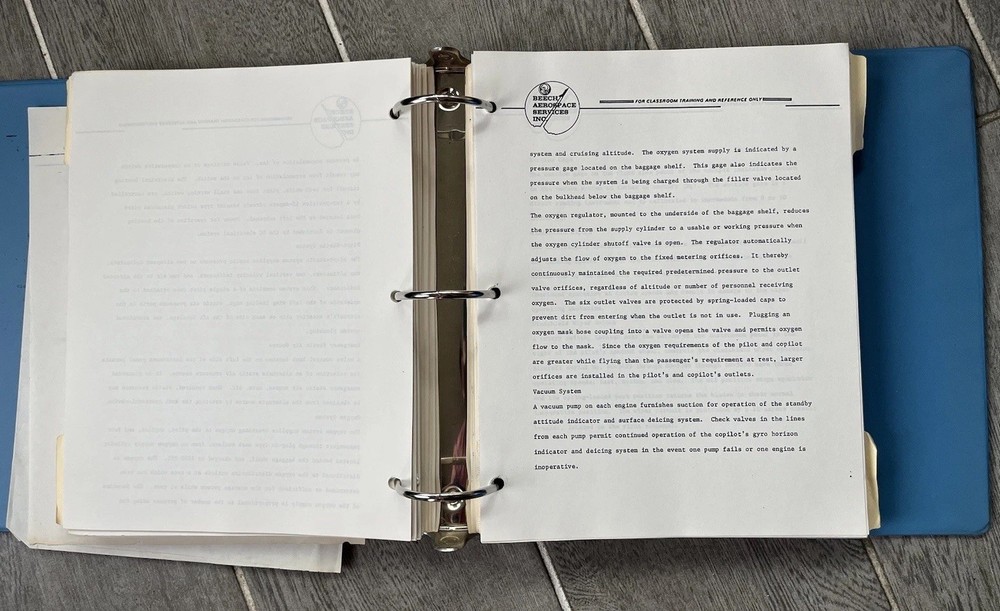 BEECH
AEROSPACE
SERVICES
INC.
FOR CLASSROOM TRAINING AND REFERENCE ONLY
system and cruising altitude. The oxygen system supply is indicated by a
pressure gage located on the baggage shelf. This gage also indicates the
pressure when the system is being charged through the filler valve located
on the bulkhead below the baggage shelf.
The oxygen regulator, mounted to the underside of the baggage shelf, reduces
the pressure from the supply cylinder to a usable or working pressure when
the oxygen cylinder shutoff valve is open. The regulator automatically
adjusts the flow of oxygen to the fixed metering orifices. It thereby
continuously maintained the required predetermined pressure to the outlet
valve orifices, regardless of altitude or number of personnel receiving
oxygen. The six outlet valves are protected by spring-loaded caps to
prevent dirt from entering when the outlet is not in use. Plugging an
oxygen mask hose coupling into a valve opens the valve and permits oxygen
flow to the mask. Since the oxygen requirements of the pilot and copilot
are greater while flying than the passenger's requirement at rest, larger
orifices are installed in the pilot's and copilot's outlets.
Vacuum System
A vacuum pump on each engine furnishes suction for operation of the standby
attitude indicator and surface deicing system. Check valves in the lines
from each pump permit continued operation of the copilot's gyro horizon
indicator and deicing system in the event one pump fails or one engine is
inoperative.